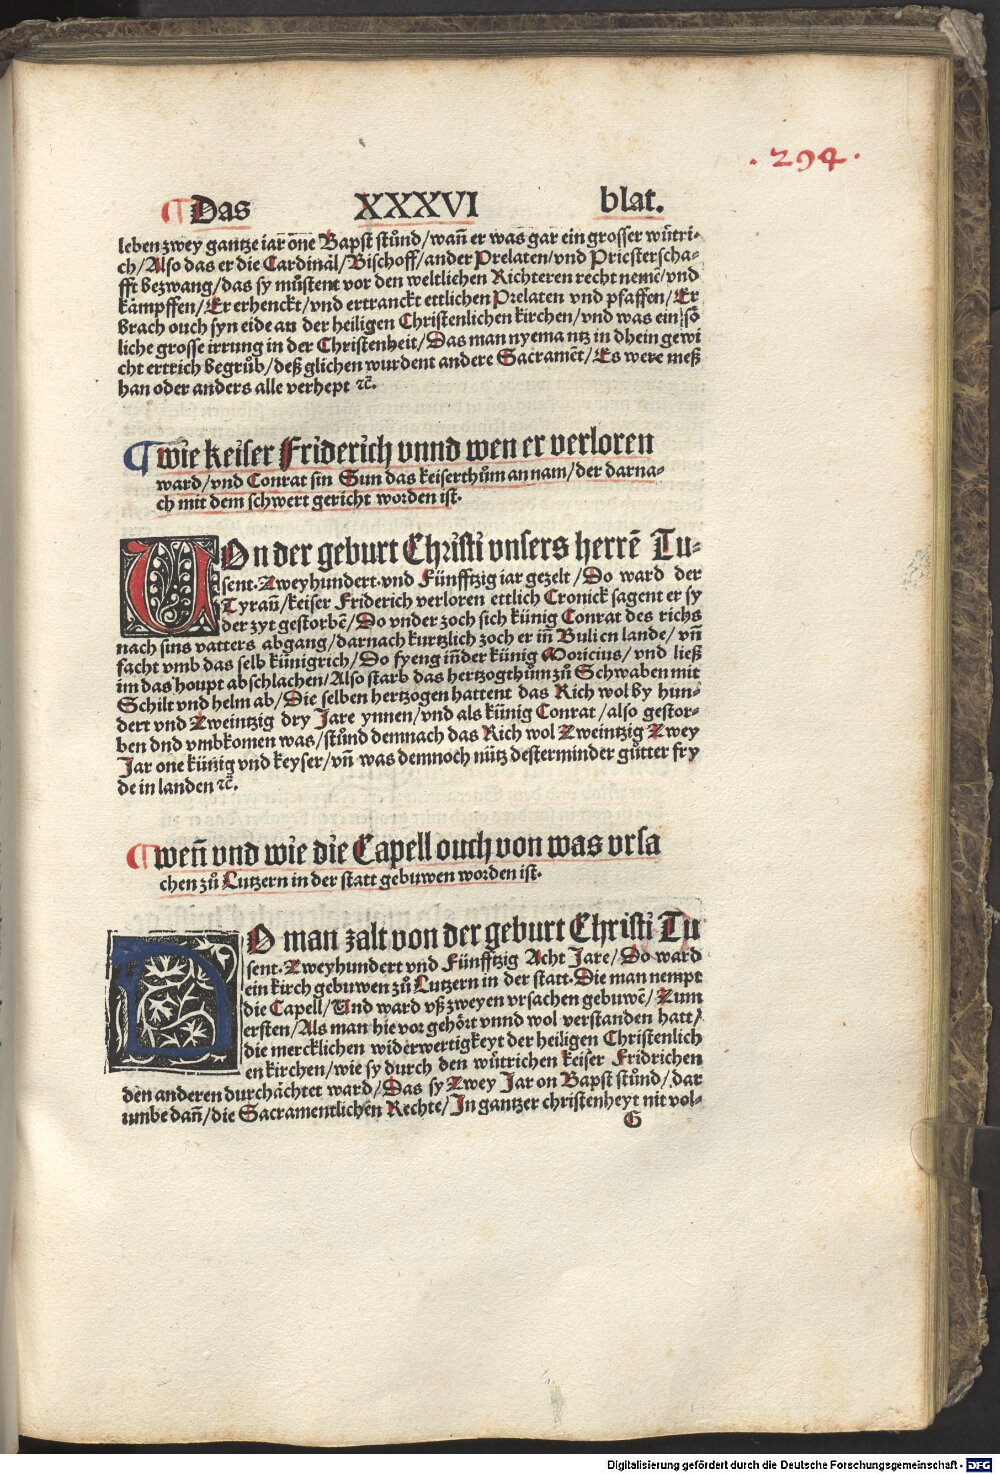 .294.
¶Das XXXVI blat.
leben zwey gantze iar one Bapst stůnd/wañ er was gar ein grosser wůtri-
ch/Also das er die Cardinäl/Bischoff/ander Prelaten/vnd Priesterscha-
fft bezwang/das sy můstent vor den weltlichen Richteren recht nemē/vnd
kämpffen/Er erhenckt/vnd ertranckt ettlichen Prelaten vnd pfaffen/Er
brach ouch syn eide an der heiligen Christenlichen kirchen/vnd was ein sö
liche grosse irrung in der Christenheit/Das man nyema ntz in dhein gewi
cht ertrich begrůb/deß glichen wurdent andere Sacramēt/Es were meß
han oder anders alle verhept ꝛc̄.
¶wie keiser Friderich vnnd wen er verloren
ward/vnd Conrat sin Sun das keiserthům an nam/der darna-
ch mit dem schwert gericht worden ist.
VOn der geburt Christi vnsers herrē Tu-
sent.Zweyhundert.vnd Fünfftzig iar gezelt/Do ward der
Tyrañ/keiser Friderich verloren ettlich Cronick sagent er sy
der zyt gestorbē/Do vnder zoch sich künig Conrat des richs
nach sins vatters abgang/darnach kurtzlich zoch er iñ Bulien lande/vñ
facht vmb das selb künigrich/Do fyeng iñder künig Moricius/vnd ließ
im das houpt abschlachen/Also starb das hertzogthům zů Schwaben mit
Schilt vnd helm ab/Die selben hertzogen hattent das Rich wol by hun-
dert vnd Zweintzig dry Jare ynnen/vnd als künig Conrat/also gestor-
ben dnd vmbkomen was/stůnd demnach das Rich wol Zweintzig Zwey
Jar one künig vnd keyser/vñ was demnoch nütz desterminder gůtter fry
de in landen ꝛc̄.
¶weñ vnd wie die Capell ouch von was vrsa
chen zů Lutzern in der statt gebuwen worden ist.
DO man zalt von der geburt Christi Tu
sent.Zweyhundert vnd Fünfftzig Acht Jare/Do ward
ein kirch gebuwen zů Lutzern in der statt.Die man nempt
die Capell/Und ward vß zweyen vrsachen gebuwē/Zum
ersten/Als man hie vor gehört vnnd wol verstanden hatt/
die mercklichen widerwertigkeyt der heiligen Christenlich
en kirchen/wie sy durch den wůtrichen keiser Fridrichen
den anderen durchächtet ward/Das sy Zwey Jar on Bapst stůnd/dar
umbe dañ/die Sacramentlichen Rechte/In gantzer christenheyt nit vol-
G
Digitalisierung gefördert durch die Deutsche Forschungsgemeinschaft - DFG